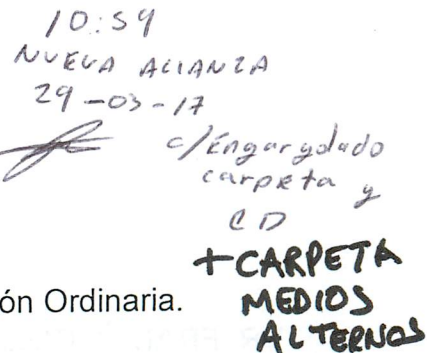 10:59
NUEVA ALIANZA
29-03-17
c/Engargolado
carpeta y
CD
+CARPETA
MEDIOS
ALTERNOS
ón Ordinaria.